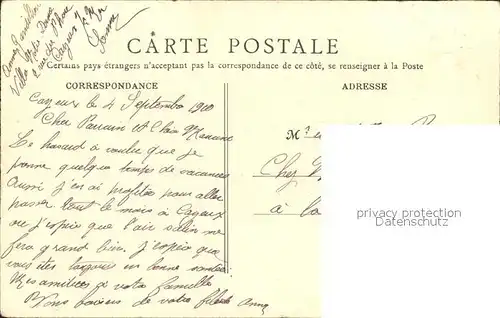 Villa Notre Dame
Cayeux s/ Mer
Somme
CARTE POSTALE
Certains pays étrangers n'acceptant pas la correspondance de ce côté, se renseigner à la Poste
CORRESPONDANCE
ADRESSE
Cayeux le 4 Septembre
Cher Parrain et Chère Marraine
Le hasard a voulu que je
prenne quelque temps de vacances
aussi j'en ai profité pour aller
passer tout le mois à Cayeux
où j'espère que l'air salin me
fera grand bien. J'espère que
vous êtes toujours en bonne santé
Mes amitiés à votre famille
Bons baisers de votre filleule Anna
Chez
à
privacy protection
ansichtskarten-center